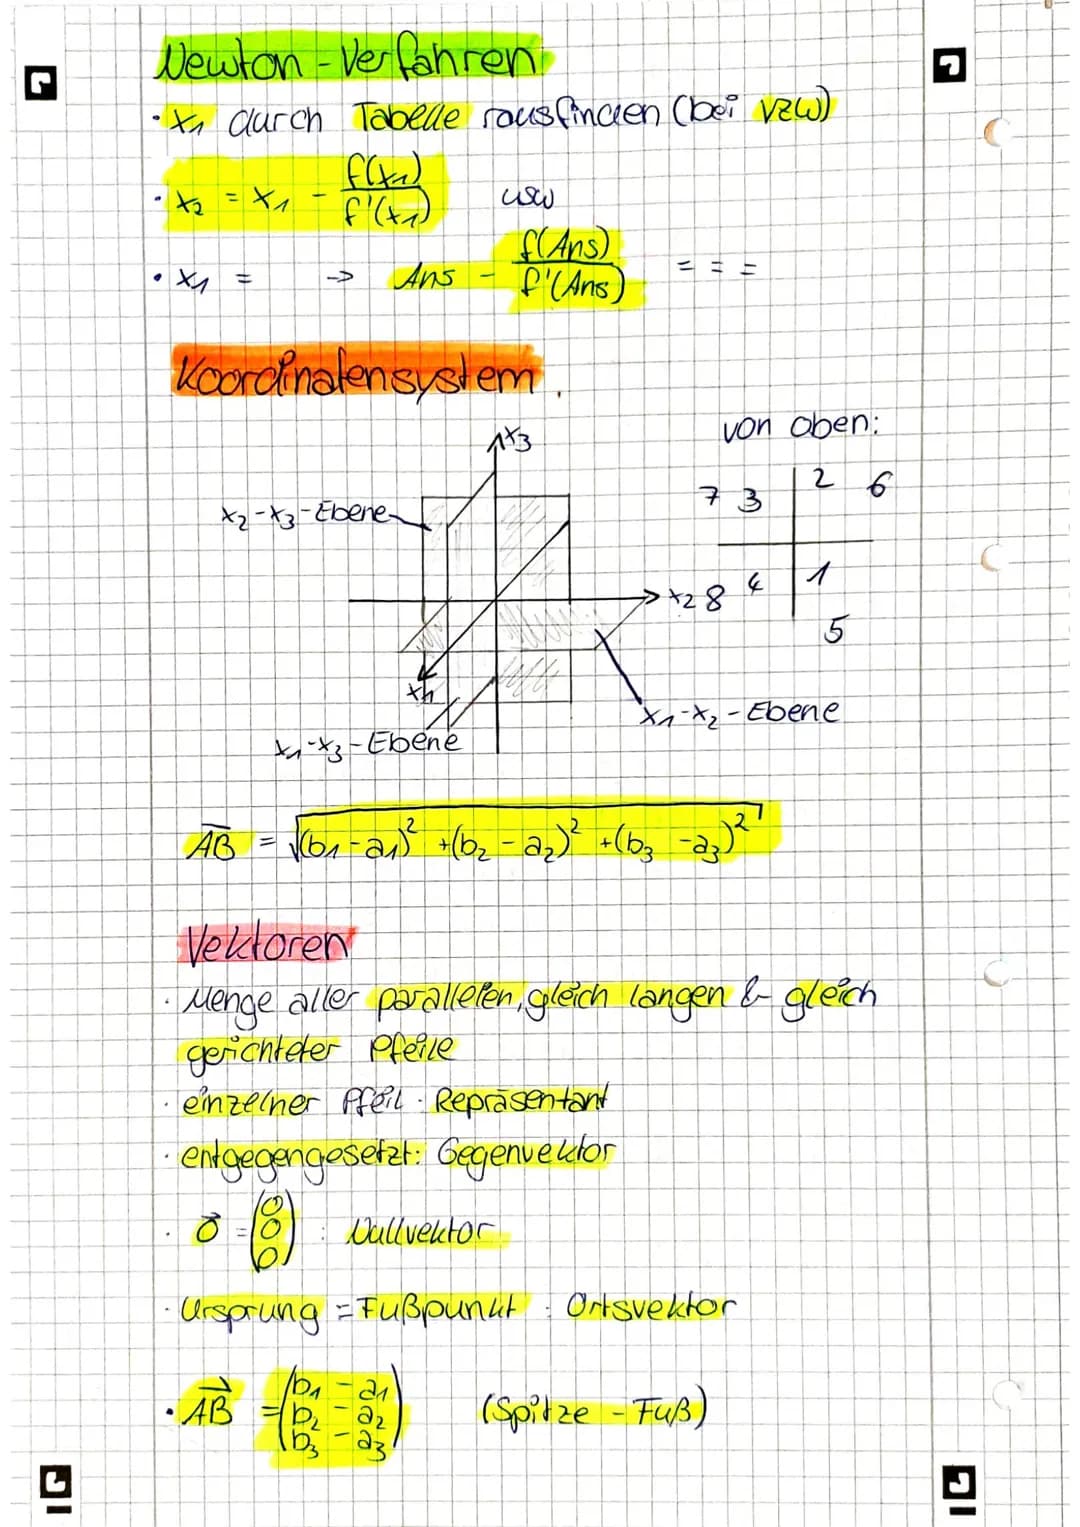 Newton-Verfahren
• x₁ durch Tabelle rausfinden (bei VZW)
• x₂ = x₁ - f(x₁)/f'(x₁) usw
• x₁ = -> Ans - f(Ans)/f'(Ans) = = =
Koordinatensystem
von oben:
x₃
7 3 2 6
x₂-x₃-Ebene
x₂
8 4 1
5
x₁
x₁-x₂-Ebene
x₁-x₃-Ebene
A͞B͞ = √((b₁-a₁)² + (b₂-a₂)² + (b₃-a₃)²)
Vektoren
· Menge aller parallelen, gleich langen & gleich
gerichteter Pfeile
· einzelner Pfeil · Repräsentant
· entgegengesetzt: Gegenvektor
· o⃗ = (0 0 0) : Nullvektor
· Ursprung = Fußpunkt : Ortsvektor
• AB⃗ = (b₁ - a₁
b₂ - a₂
b₃ - a₃) (Spitze - Fuß)